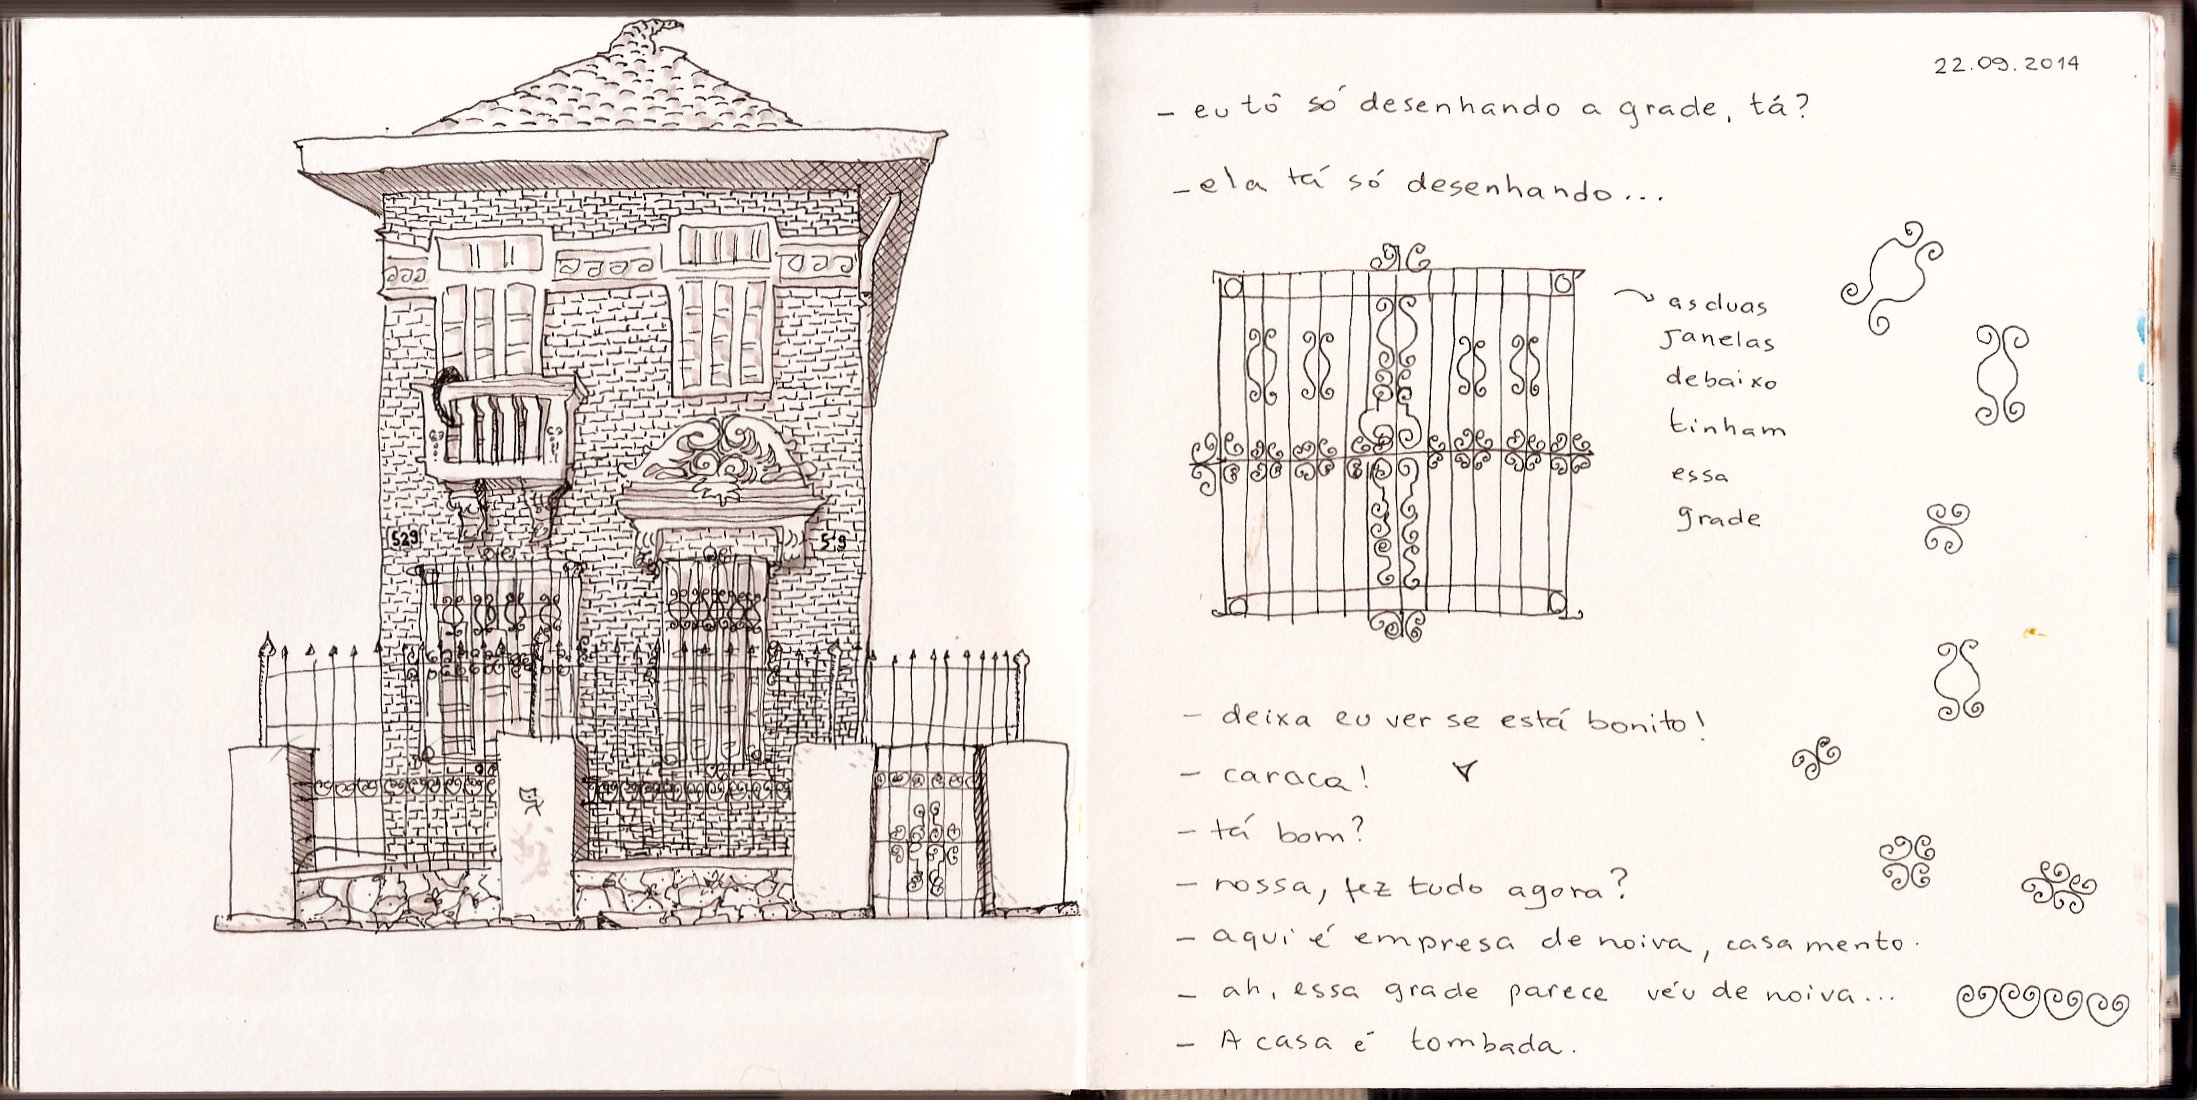 529
519
22.09.2014
– eu tô só desenhando a grade, tá?
– ela tá só desenhando...
as duas
janelas
debaixo
tinham
essa
grade
– deixa eu ver se está bonito!
– caraca!
– tá bom?
– nossa, fez tudo agora?
– aqui é empresa de noiva, casamento.
– ah, essa grade parece véu de noiva...
– A casa é tombada.